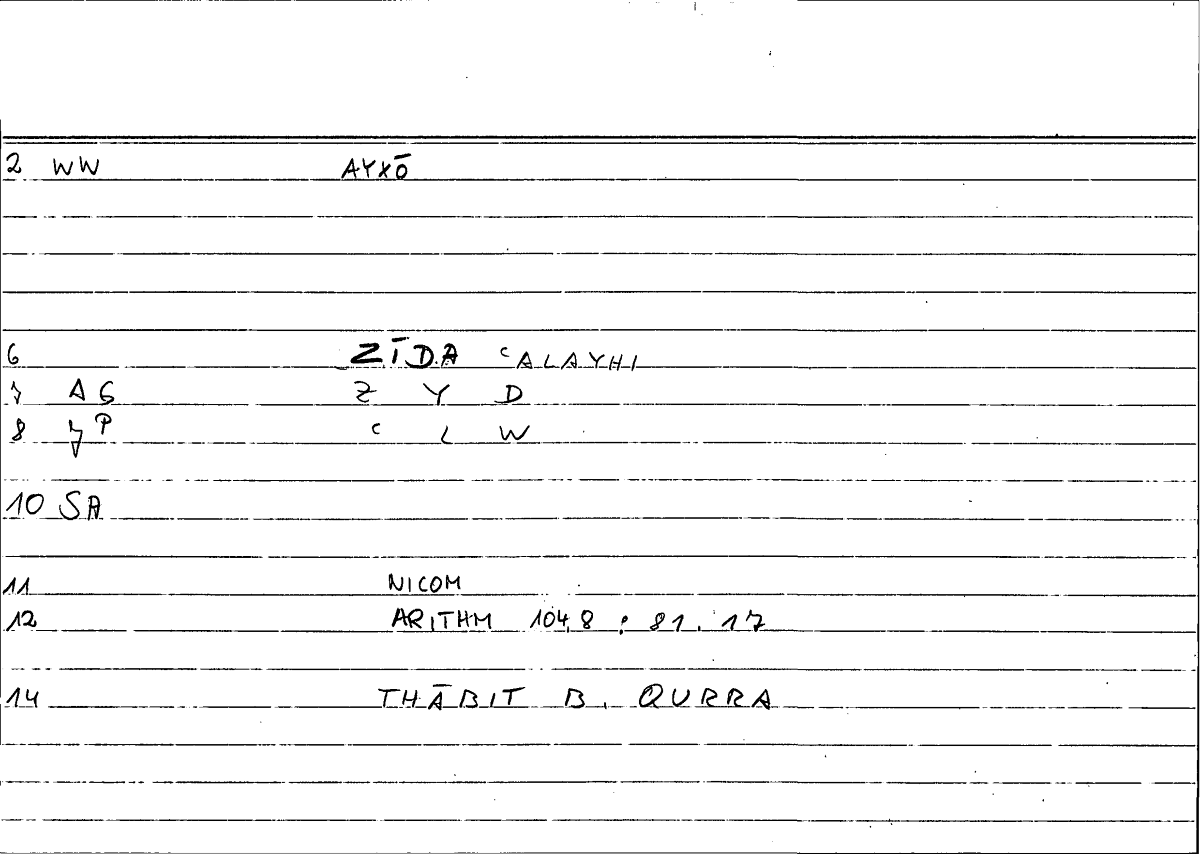 2 WW AYXŌ
6 ZĪDA ʿALAYHI
7 AG Z Y D
8 ʿ L W
10 SA
11 NICOM
12 ARITHM 104,8 : 81.17
14 THĀBIT B. QURRA